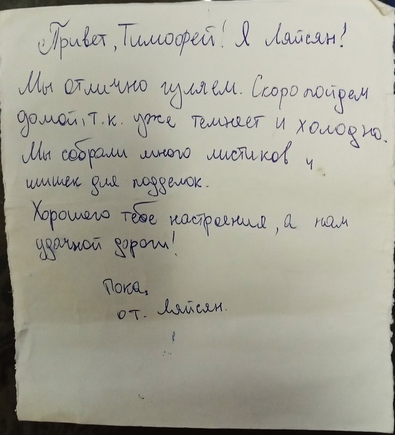 Привет, Тимофей! Я Ляйсян!
Мы отлично гуляем. Скоро пойдем
домой, т.к. уже темнеет и холодно.
Мы собрали много листиков и
шишек для поделок.
Хорошего тебе настроения, а нам
удачной дороги!
Пока,
от. Ляйсян.